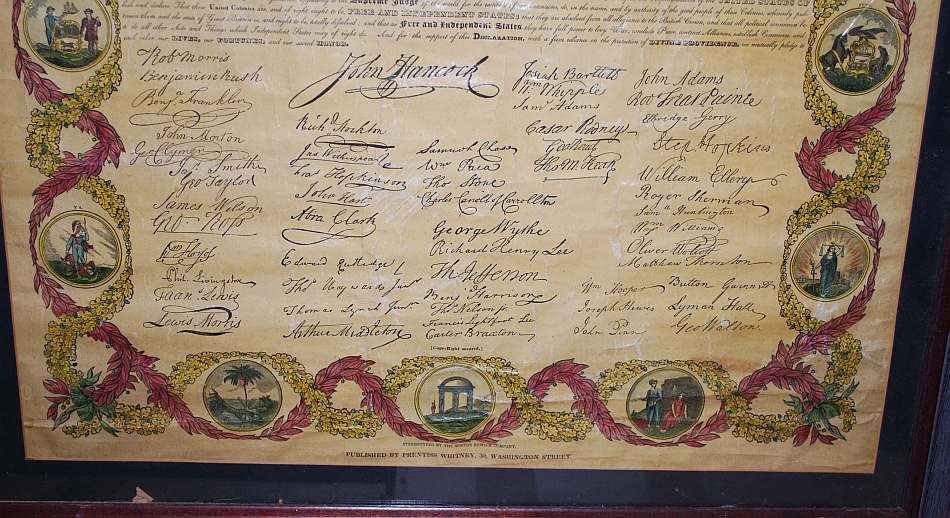 Supreme Judge of the world for the rectitude of our intentions, do, in the name, and by authority of the good people of these Colonies, solemnly pub-
lish and declare, That these United Colonies are, and of right ought to be, FREE AND INDEPENDENT STATES; that they are absolved from all allegiance to the British Crown, and that all political connexion be-
tween them and the state of Great Britain is, and ought to be, totally dissolved; and that as Free and Independent States they have full power to levy War, conclude Peace, contract Alliances, establish Commerce, and
to do all other Acts and Things which Independent States may of right do. And for the support of this DECLARATION, with a firm reliance on the protection of DIVINE PROVIDENCE, we mutually pledge to
each other our LIVES, our FORTUNES, and our sacred HONOR.
Robt Morris
Benjamin Rush
Benja Franklin
John Morton
Geo Clymer
Jas Smith
Geo Taylor
James Wilson
Geo Ross
Wm Floyd
Phil. Livingston
Frans Lewis
Lewis Morris
John Hancock
Richd Stockton
Jno Witherspoon
Fras Hopkinson
John Hart
Abra Clark
Edward Rutledge
Thos Heyward Junr
Thomas Lynch Junr
Arthur Middleton
Samuel Chase
Wm Paca
Thos Stone
Charles Carroll of Carrollton
George Wythe
Richard Henry Lee
Th Jefferson
Benj Harrison
Thos Nelson jr
Francis Lightfoot Lee
Carter Braxton
[CopyRight secured.]
Josiah Bartlett
Wm Whipple
Saml Adams
Caesar Rodney
Geo Read
Tho M:Kean
John Adams
Robt Treat Paine
Elbridge Gerry
Step Hopkins
William Ellery
Roger Sherman
Saml Huntington
Wm Williams
Oliver Wolcott
Matthew Thornton
Wm Hooper
Joseph Hewes
John Penn
Button Gwinnett
Lyman Hall
Geo Walton.
STEREOTYPED BY THE BOSTON BEWICK COMPANY.
PUBLISHED BY PRENTISS WHITNEY, 30, WASHINGTON STREET.